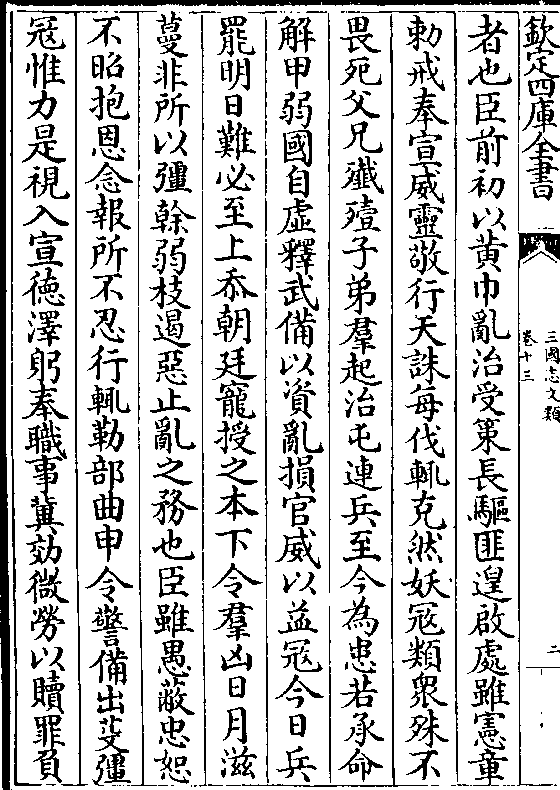 欽定四庫全書
三國志文類
卷十三
二
者也臣前初以黄巾亂治受策長驅匪遑啟處雖憲章
勅戒奉宣威靈敬行天誅每伐輒克然妖寇類衆殊不
畏死父兄殱殪子弟羣起治屯連兵至今為患若承命
解甲弱國自虛釋武備以資亂損官威以益寇今日兵
罷明日難必至上忝朝廷寵授之本下令羣凶日月滋
蔓非所以彊榦弱枝遏惡止亂之務也臣雖愚蔽忠恕
不昭抱恩念報所不忍行輒勒部曲申令警備出芟彊
寇惟力是視入宣徳澤躬奉職事冀効微勞以贖罪負